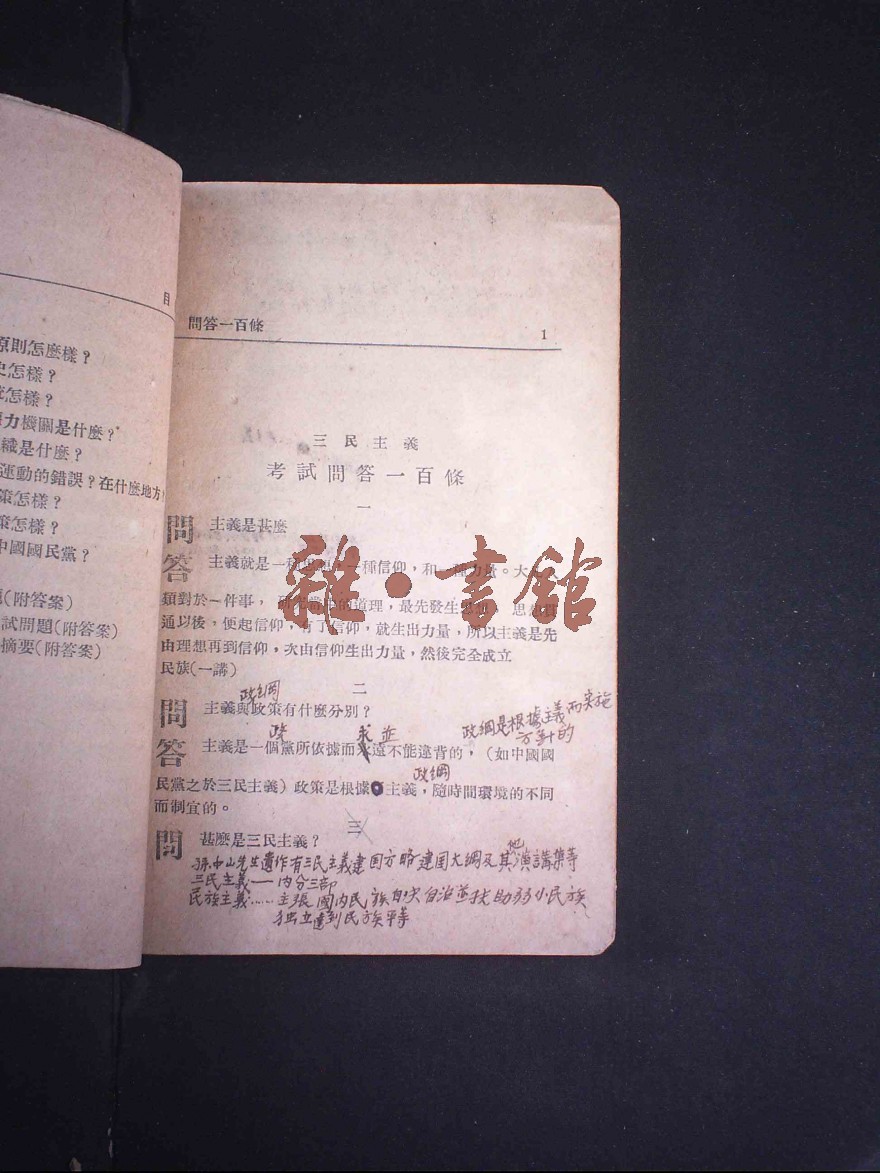 目
原則怎麼樣？
史怎樣？
怎樣？
力機關是什麼？
織是什麼？
運動的錯誤？在什麼地方？
策怎樣？
策怎樣？
中國國民黨？
題(附答案)
試問題(附答案)
摘要(附答案)
問答一百條 1
三民主義
考試問答一百條
一
問 主義是甚麼
答 主義就是一種思想 一種信仰，和一種力量。大
類對於一件事， 研究當中的道理，最先發生思想， 思想貫
通以後，便起信仰，有了信仰，就生出力量，所以主義是先
由理想再到信仰，次由信仰生出力量，然後完全成立
民族(一講)
二
政綱
問 主義與政策有什麼分別？
政綱是根據主義而实施
方針的
答 主義是一個黨所依據而永遠不能違背的，(如中國國
政綱
民黨之於三民主義) 政策是根據主義，隨時間環境的不同
而制宜的。
三
問 甚麼是三民主義？
孫中山先生遺作有三民主義建国方略建国大綱及其他演講集等
三民主義——內分三部
民族主義……主張國內民族自决自治並扶助弱小民族
独立達到民族平等
雜·書館